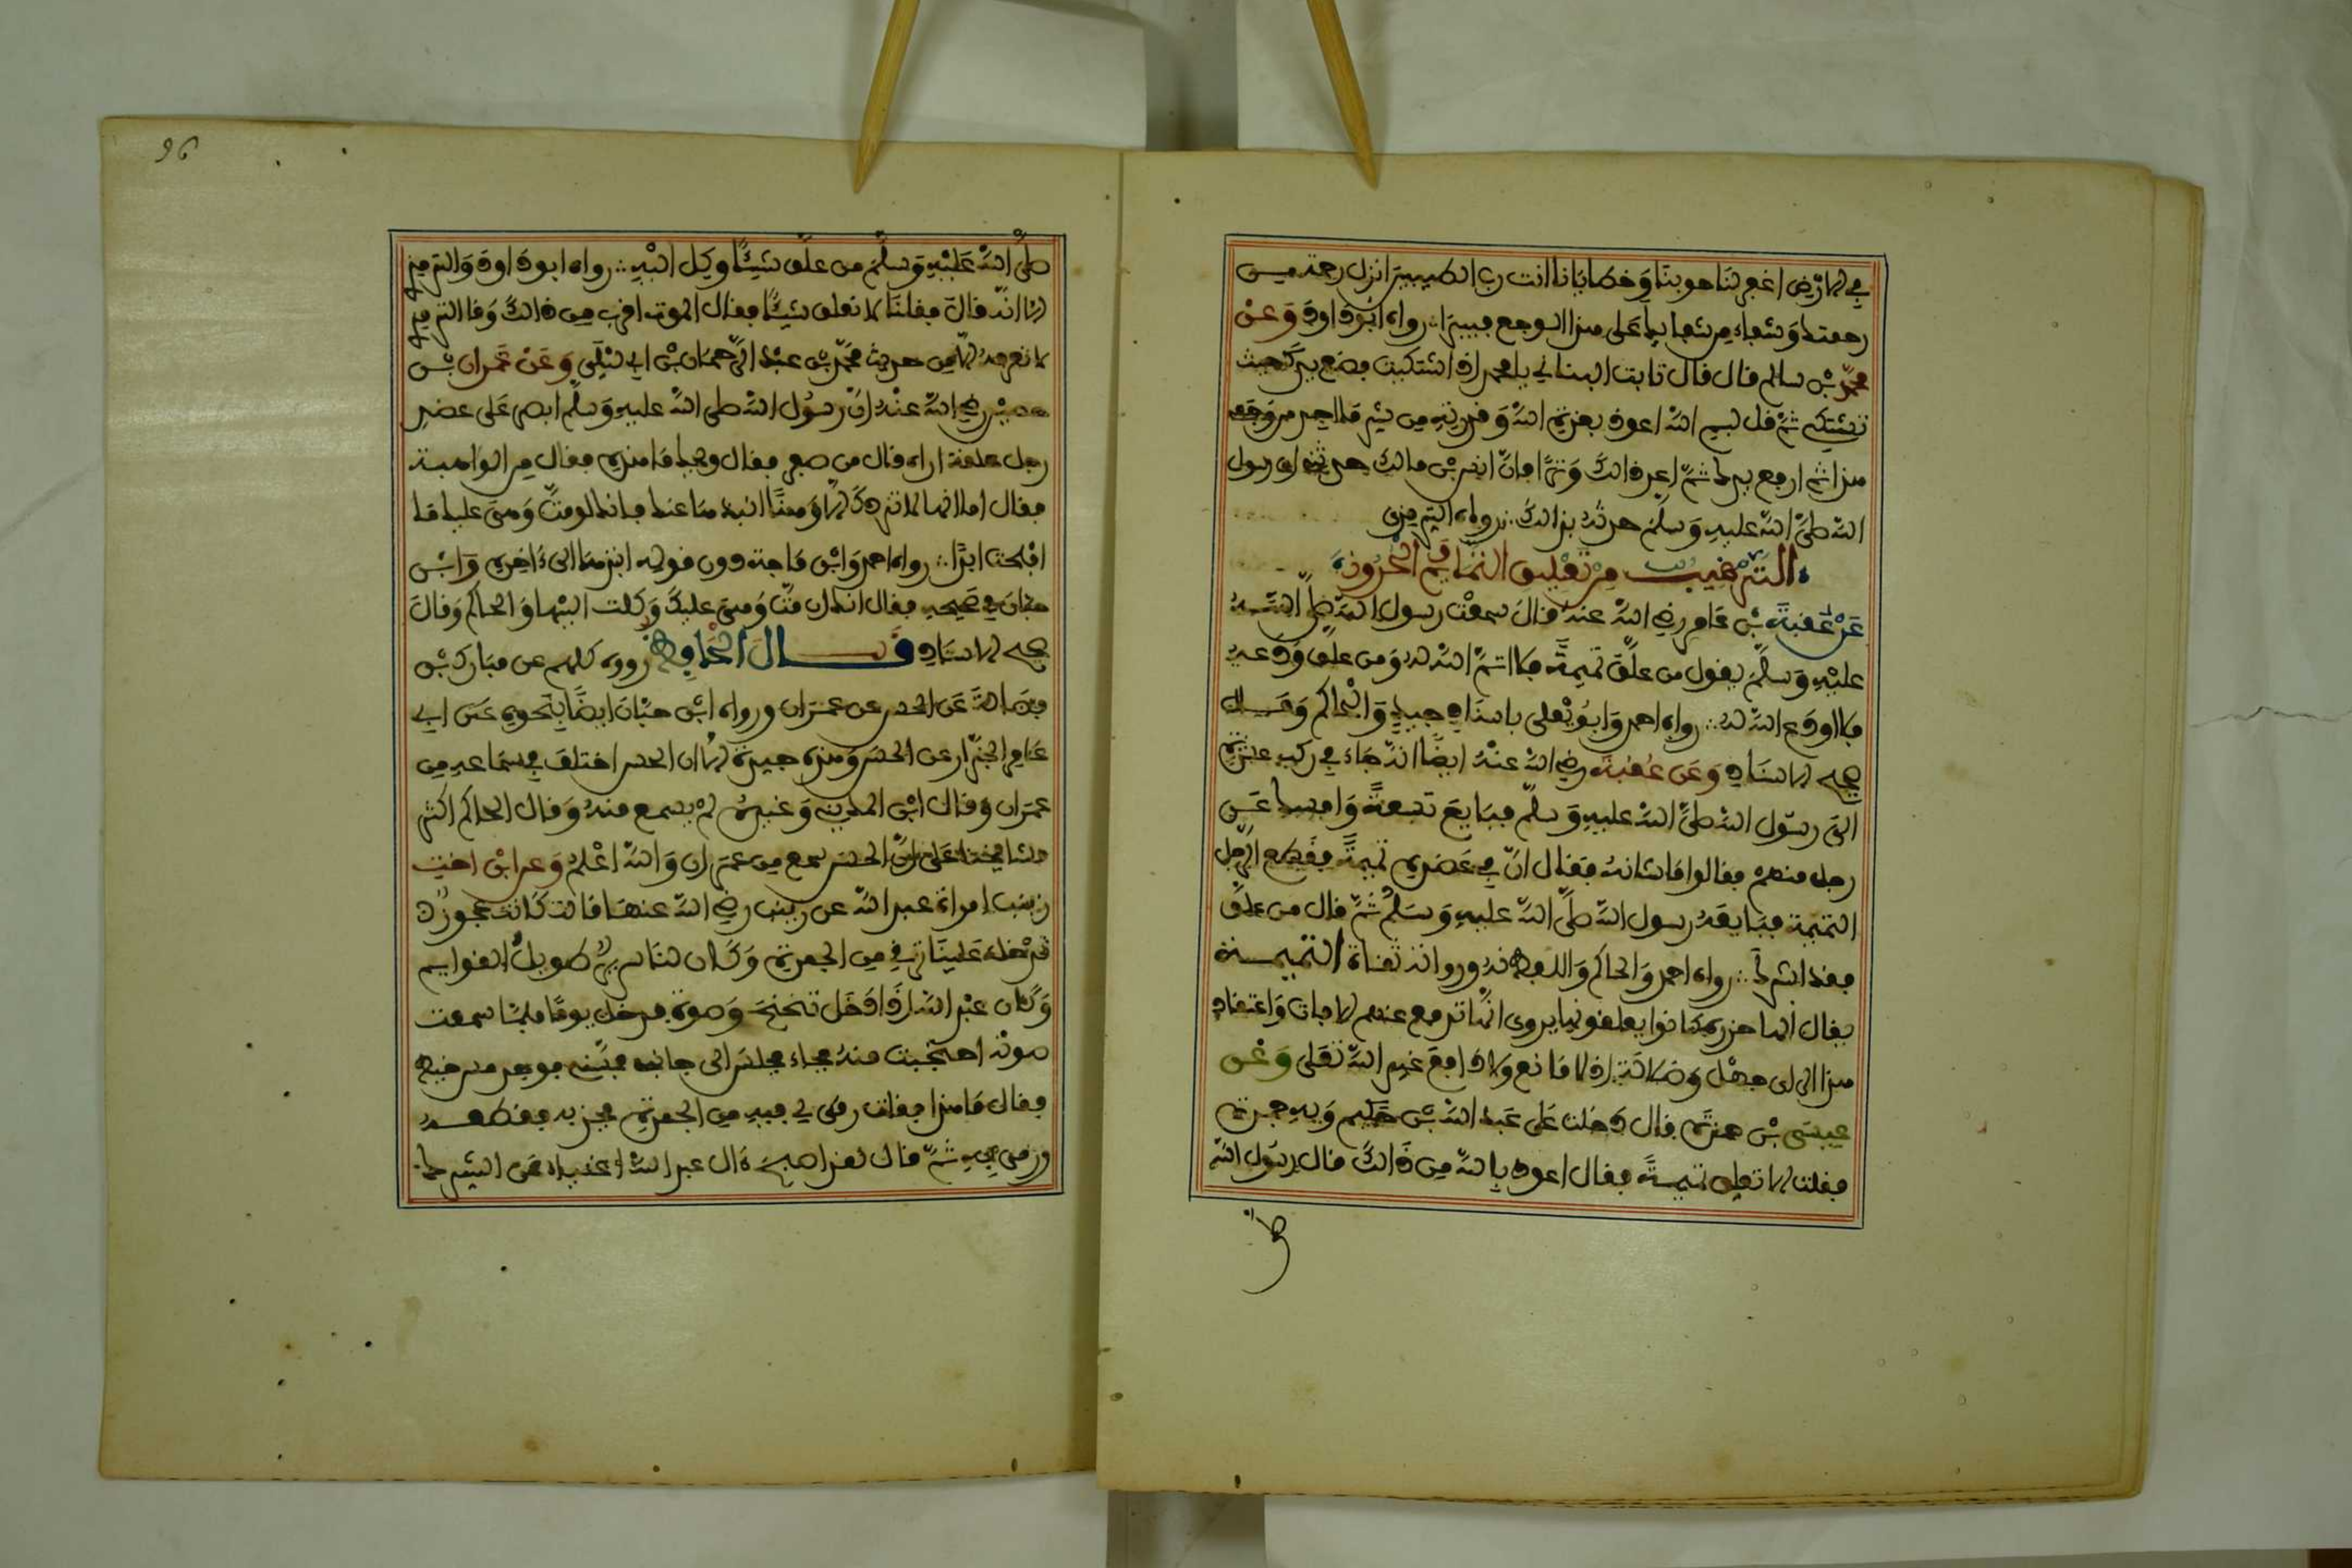 في الارض اغفر لنا حوبنا وخطايانا انت رب الطيبين انزل رحمة من
رحمتك وشفاء من شفائك على هذا الوجع فيبرا رواه ابو داود وعن
محمد بن سالم قال قال ثابت البناني يا محمد اذا اشتكيت فضع يدك حيث
تشتكي ثم قل بسم الله اعوذ بعزة الله وقدرته من شر ما اجد من وجعي
هذا ثم ارفع يدك ثم اعد ذالك وترا فان انس بن مالك حدثني ان رسول
الله صلى الله عليه وسلم حدثه بذالك رواه الترمذي
الترهيب من تعليق التمايم والحروز
عن عقبة بن عامر رضي الله عنه قال سمعت رسول الله صلى الله
عليه وسلم يقول من علق تميمة فلا اتم الله له ومن علق ودعة
فلا اودع الله له رواه احمد وابو يعلى باسناد جيد والحاكم وقال
صحيح الاسناد وعن عقبة رضي الله عنه ايضا انه جاء في ركب عشرة
الى رسول الله صلى الله عليه وسلم فبايع تسعة وامسك عن
رجل منهم فقالوا ما شانه فقال ان في عضده تميمة فقطع الرجل
التميمة فبايعه رسول الله صلى الله عليه وسلم ثم قال من علق
فقد اشرك رواه احمد والحاكم واللفظ له ورواته ثقاة التميمة
يقال انها خرزة كانوا يعلقونها يرون انها ترفع عنهم الافات واعتقاد
هذا الراي جهل وضلالة اذ لا مانع ولا دافع غير الله تعلى وعن
عيسى بن حمزة قال دخلت على عبد الله بن حكيم وبه حمرة
فقلت الا تعلق تميمة فقال اعوذ بالله من ذالك قال رسول الله
صلى
96
صلى الله عليه وسلم من علق شيئا وكل اليه رواه ابو داود والترمذي
الا انه قال فقلنا الا تعلق شيئا فقال الموت اقرب من ذالك وقال الترمذي
لا نعرفه الا من حديث محمد بن عبد الرحمان بن ابي ليلى وعن عمران بن
حصين رضي الله عنه ان رسول الله صلى الله عليه وسلم ابصر على عضد
رجل حلقة اراه قال من صفر فقال ويحك ما هذه فقال من الواهنة
فقال اما انها لا تزدك الا وهنا انبذها عنك فانك لو مت وهي عليك ما
افلحت ابدا رواه احمد وابن ماجة دون قوله انبذها الى ءاخره وابن
حبان في صحيحه فقال انك ان مت وهي عليك وكلت اليها والحاكم وقال
صحيح الاسناد قال الحافظ رووه كلهم عن مبارك بن
فضالة عن الحسن عن عمران ورواه ابن حبان ايضا بنحوه عن ابي
عامر الخزار عن الحسن وهذه جيدة الا ان الحسن اختلف في سماعه من
عمران وقال ابن المديني وغيره لم يسمع منه وقال الحاكم اكثر
مشايخنا على ان الحسن سمع من عمران والله اعلم وعن ابن اخت
زينب امراة عبد الله عن زينب رضي الله عنها قالت كانت عجوز
تدخل علينا ترقي من الحمرة وكان لنا سرير طويل القوايم
وكان عبد الله اذا دخل تنحنح وصوت فدخل يوما فلما سمعت
صوته احتجبت منه فجاء فجلس الى جانبي فمسني فوجد مس خيط
فقال ما هذا فقلت رقى لي فيه من الحمرة فجذبه فقطعه
ورمى به ثم قال لقد اصبح ءال عبد الله اغنياء عن الشرك